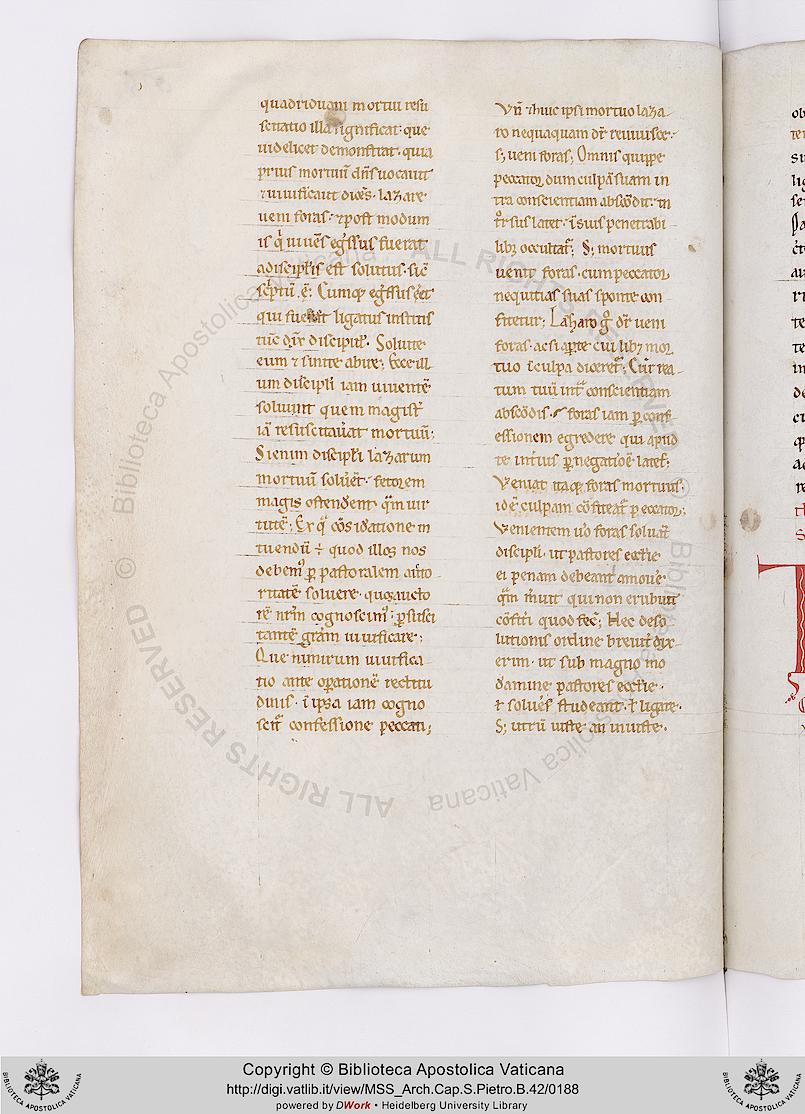 quadriduani mortui resu
scitatio illa significat. que
uidelicet demonstrat. quia
prius mortuū dn̄s uocauit
⁊ uiuificauit dicēs. lazare
ueni foras. ⁊ post modum
is q̇ uiuēs eg̃ssus fuerat
adiscipl̃is est solutus. sic̄
sc̃ptū. ē. Cumq; eg̃ssus eēt
qui fuerat ligatus institis
tūc dix̃ discipul̃. Soluite
eum ⁊ sinite abire. Ecce ill
um discipl̃i iam uiuentē
soluunt quem magist̃
iā resuscitauerat mortuū;
Si enim discipl̃i lazarum
mortuū soluēt. fetorem
magis ostendent̃ q̃m uir
tutē; Ex q̃ cōsidatione in
tuendū ÷ quod illos nos
debem᷒ ꝑ pastoralem aucto
ritatē soluere. quos aucto
rē nr̃m cognoscim᷒ ꝑ susci
tantē gr̃am uiuificare;
Que nimirum uiuifica
tio ante oꝑationē rectitu
dinis. ī ipsa iam cogno
scit᷒ confessione peccati;
Vn̄ ⁊ huic ipsi mortuo laza
ro nequaquam dr̃ reuiuisce.
s; ueni foras; Omnis quippe
peccator dum culpā suam in
tra conscientiam abscōdit. in
tr̃sus latet. ī suis penetrabi
lib; occultat᷒; S; mortuus
uenit foras. cum peccator
nequitias suas sponte con
fitetur; Lazaro g̊ dr̃ ueni
foras. ac si aꝑte cui lib; mor
tuo ī culpa diceret᷒; Cur rea
tum tuū int᷒ conscientiam
abscōdis. foras iam ꝑ conf
essionem egredere qui apud
te int̃ius ꝑ negatioē lates;
Veniat itaq; foras mortuus.
id ē culpam cōfiteat᷒ peccator;
Venientem ūo foras soluāt
discipl̃i. ut pastores eccl̃ie
ei penam debeant amouē
q̃m m̃uit qui non erubuit
cōfit̃i quod fec̃; Hec de so
lutionis ordine breuit̃ dix
erim. ut sub magno mo
damine pastores eccl̃ie
ł soluēs studeant. ł ligare.
S; utrū iuste an iniuste.
ALL RIGHTS RESERVED © Biblioteca Apostolica Vaticana
Copyright © Biblioteca Apostolica Vaticana
http://digi.vatlib.it/view/MSS_Arch.Cap.S.Pietro.B.42/0188
powered by DWork • Heidelberg University Library